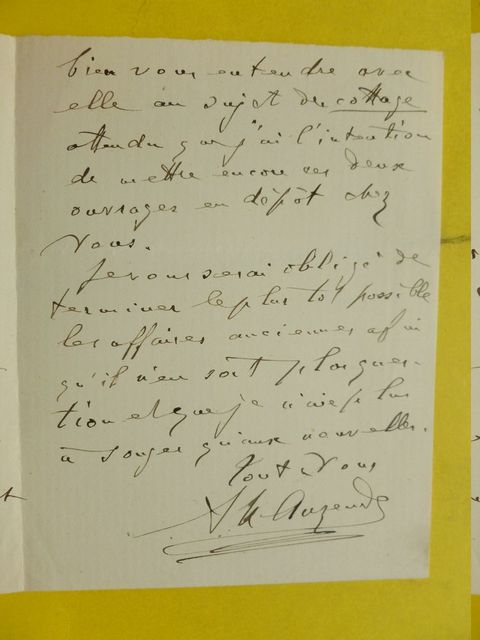 bien vous entendre avec
elle au sujet du cottage
attendu que j'ai l'intention
de mettre encore ces deux
ouvrages en dépôt chez
vous.
Je vous serai obligé de
terminer le plus tôt possible
les affaires anciennes afin
qu'il n'en soit plus ques-
tion et que je n'aie plus
à songer qu'aux nouvelles.
Tout à vous